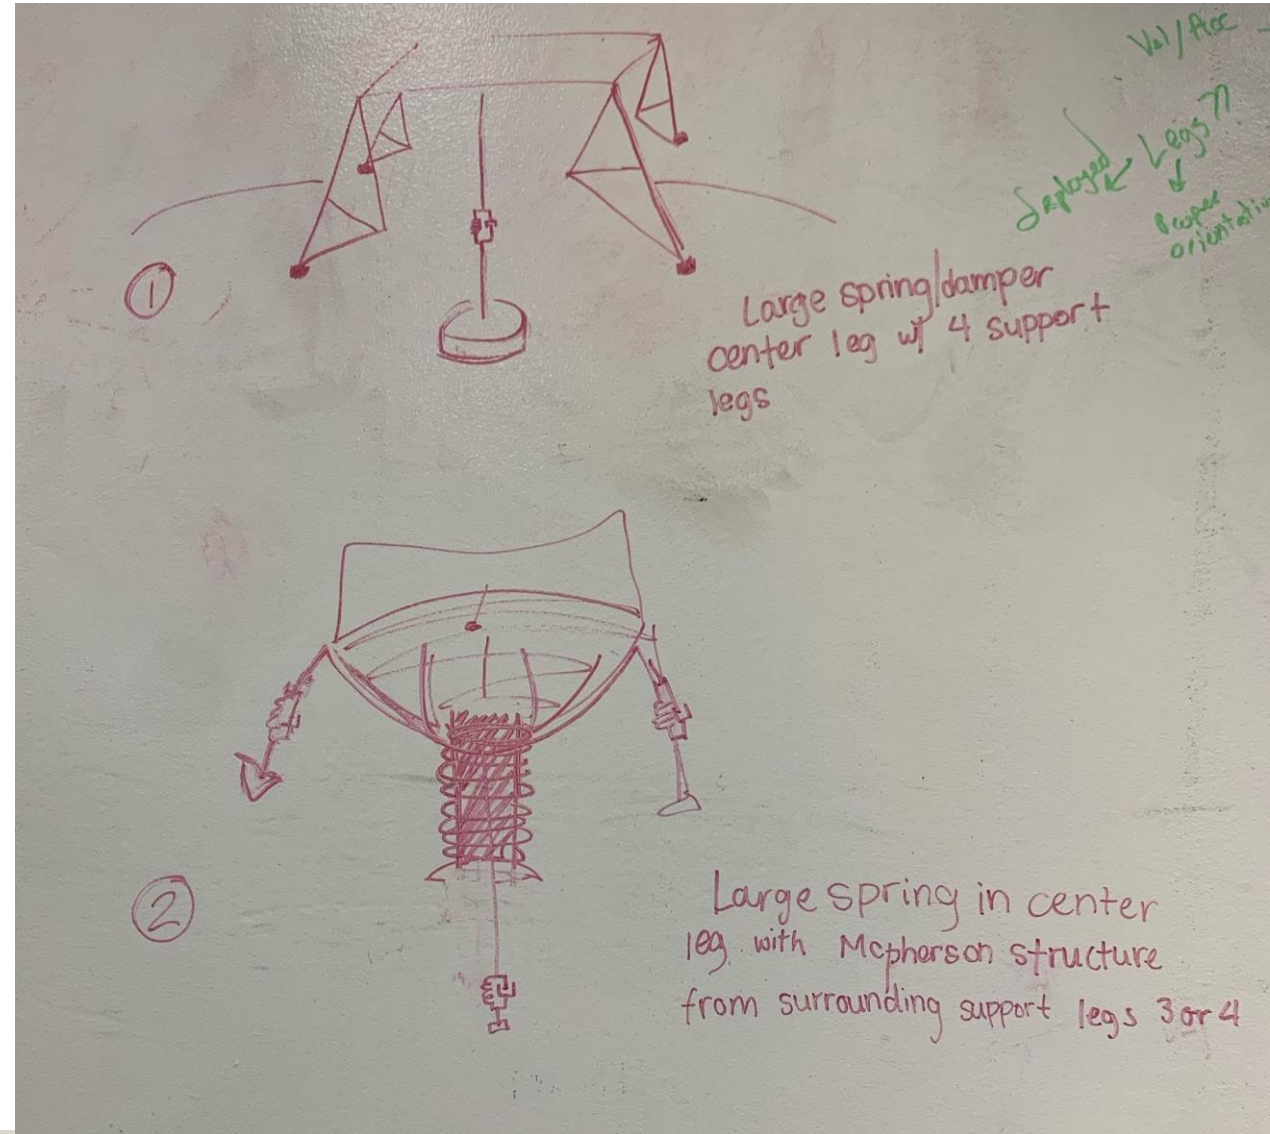 Vel/Acc
Legs??
Deployed
Proper
orientation
①
Large spring/damper
center leg w/ 4 support
legs
②
Large spring in center
leg with Mcpherson structure
from surrounding support legs 3 or 4